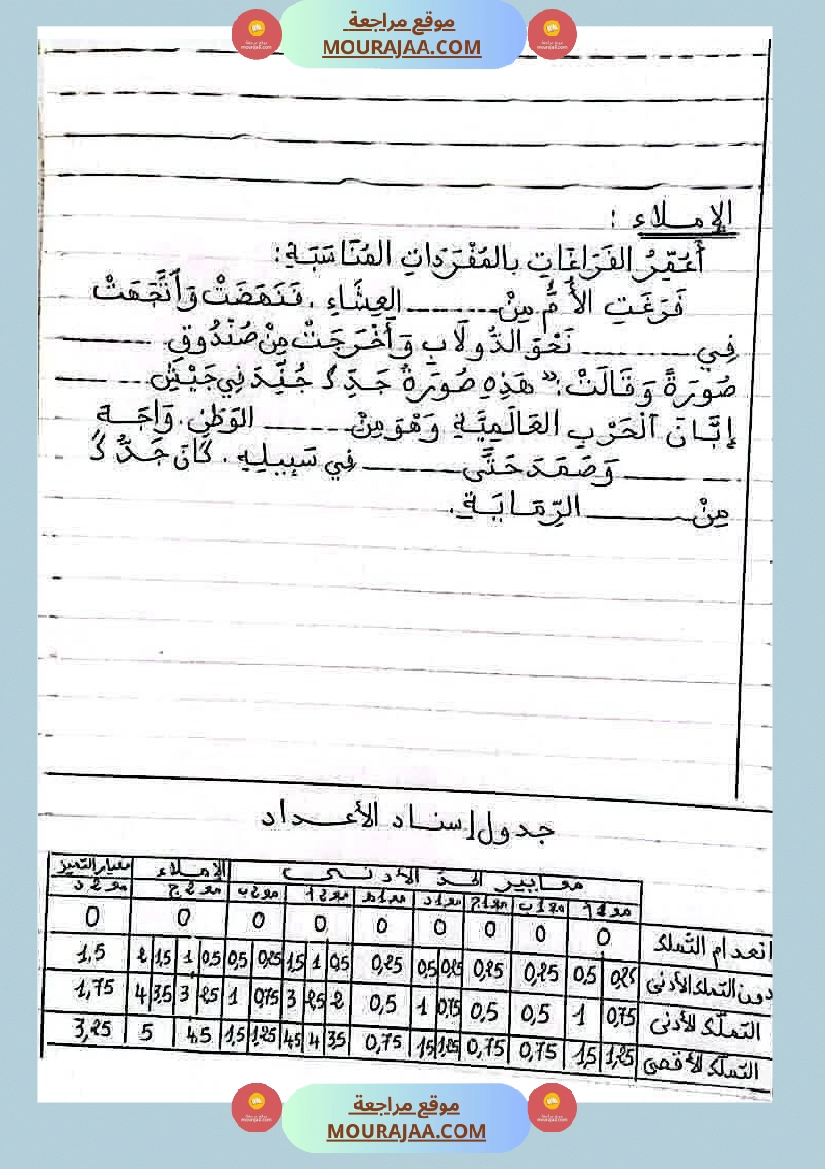 موقع مراجعة
MOURAJAA.COM
الإملاء :
أُعَمِّرُ الفَرَاغَاتِ بِالمُفْرَدَاتِ المُنَاسَبَةِ :
فَرَغَتِ الأُمُّ مِنْ ......... العِشَاءِ . فَنَهَضَتْ وَٱتَّجَهَتْ
فِي ......... نَحْوَ الدُّولَابِ وَأَخْرَجَتْ مِنْ صُنْدُوقٍ .........
صُورَةً وَقَالَتْ : " هَذِهِ صُورَةُ جَدِّكَ جُنِّدَ فِي جَيْشِ .........
إِبَّانَ ٱلْحَرْبِ العَالَمِيَّةِ وَهْوَ مِنْ ......... الوَطَنِ . وَاجَهَ
......... وَصَمَدَ حَتَّى ......... فِي سَبِيلِهِ . كَانَ جَدُّكَ
مِنْ ......... الرِّمَايَةِ .
جدول إسناد الأعداد
معايير الحدّ الأدنى الإملاء معيار التميز
مع 1 ب مع 1 ج مع 1 د مع 1 هـ مع 2 أ مع 2 ب مع 2 ج مع 2 د
انعدام التملك 0 0 0 0 0 0 0 0 0
دون التملك الأدنى 0,25 0,5 0,25 0,25 0,25 0,5 0,25 0,5 1 1,5 0,25 0,5 0,5 1 1,5 2 1,5
التملّك الأدنى 0,75 1 0,5 0,5 0,75 1 0,5 2 2,5 3 0,75 1 2,5 3 3,5 4 1,75
التملّك الأقصى 1,25 1,5 0,75 0,75 1,25 1,5 0,75 3,5 4 4,5 1,25 1,5 4,5 5 3,25
موقع مراجعة
MOURAJAA.COM